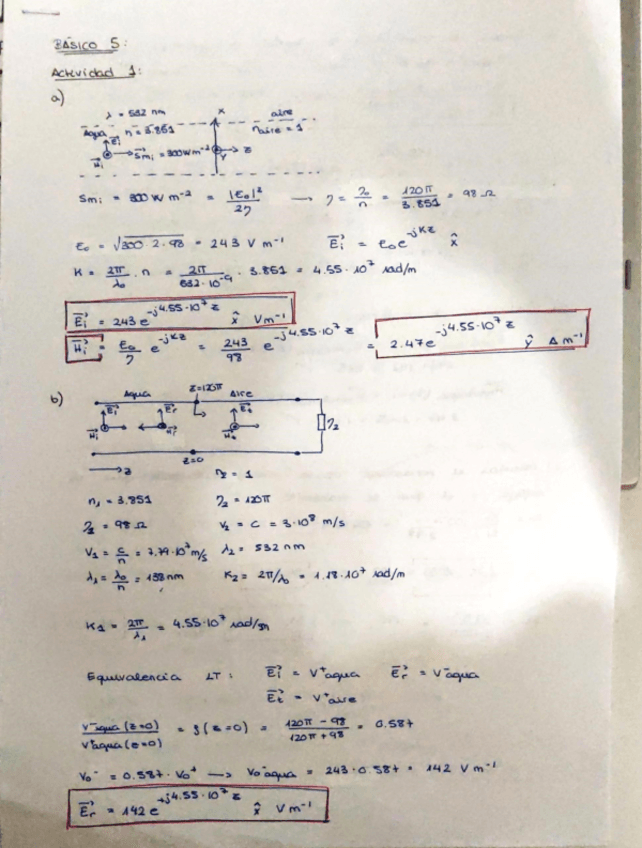 BÁSICO 5:
Actividad 1:
a)
λ = 532 nm
x
aire
Agua n = 3.851
n aire = 1
Ei
Hi
Smi = 300 W m⁻²
y
z
Smi = 300 W m⁻² = |E₀|² / 2η → η = η₀/n = 120π/3.851 = 98 Ω
E₀ = √(300·2·98) = 243 V m⁻¹ Ei = E₀e^(-jKz) x̂
K = 2π/λ₀ · n = 2π/(532·10⁻⁹) · 3.851 = 4.55·10⁷ rad/m
Ei = 243 e^(-j4.55·10⁷z) x̂ V m⁻¹
Hi = E₀/η e^(-jKz) = 243/98 e^(-j4.55·10⁷z) = 2.47e^(-j4.55·10⁷z) ŷ A m⁻¹
b)
Agua
z=120π
Aire
Ei
Er
Et
Hi
Hr
Ht
η₂
z
z=0
n₂ = 1
n₁ = 3.851 η₂ = 120π
η₁ = 98 Ω v₂ = c = 3·10⁸ m/s
v₁ = c/n = 7.79·10⁷ m/s λ₂ = 532 nm
λ₁ = λ₀/n = 138 nm K₂ = 2π/λ₀ = 1.18·10⁷ rad/m
K₁ = 2π/λ₁ = 4.55·10⁷ rad/m
Equivalencia LT: Ei = V⁺agua Er = V⁻agua
Et = V⁺aire
V⁻agua(z=0) / V⁺agua(z=0) = ρ(z=0) = (120π - 98)/(120π + 98) = 0.587
V₀⁻ = 0.587·V₀⁺ → V₀⁻agua = 243·0.587 = 142 V m⁻¹
Er = 142 e^(+j4.55·10⁷z) x̂ V m⁻¹